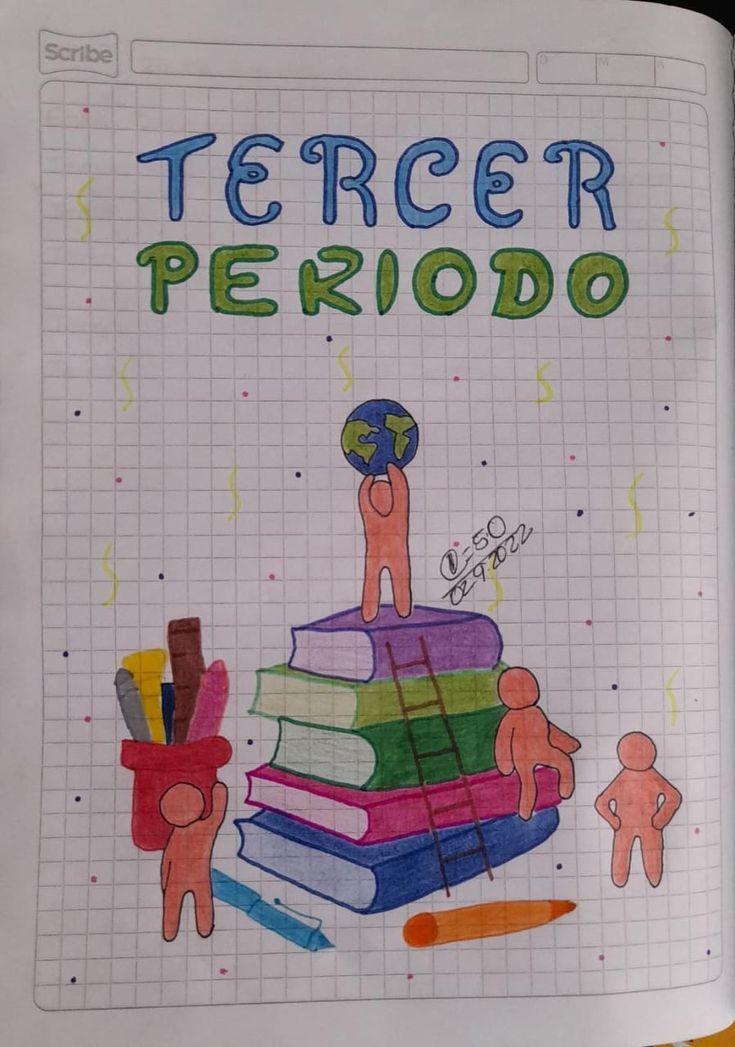 Scribe
D M A
TERCER
PERIODO
①=50
02-9.2022